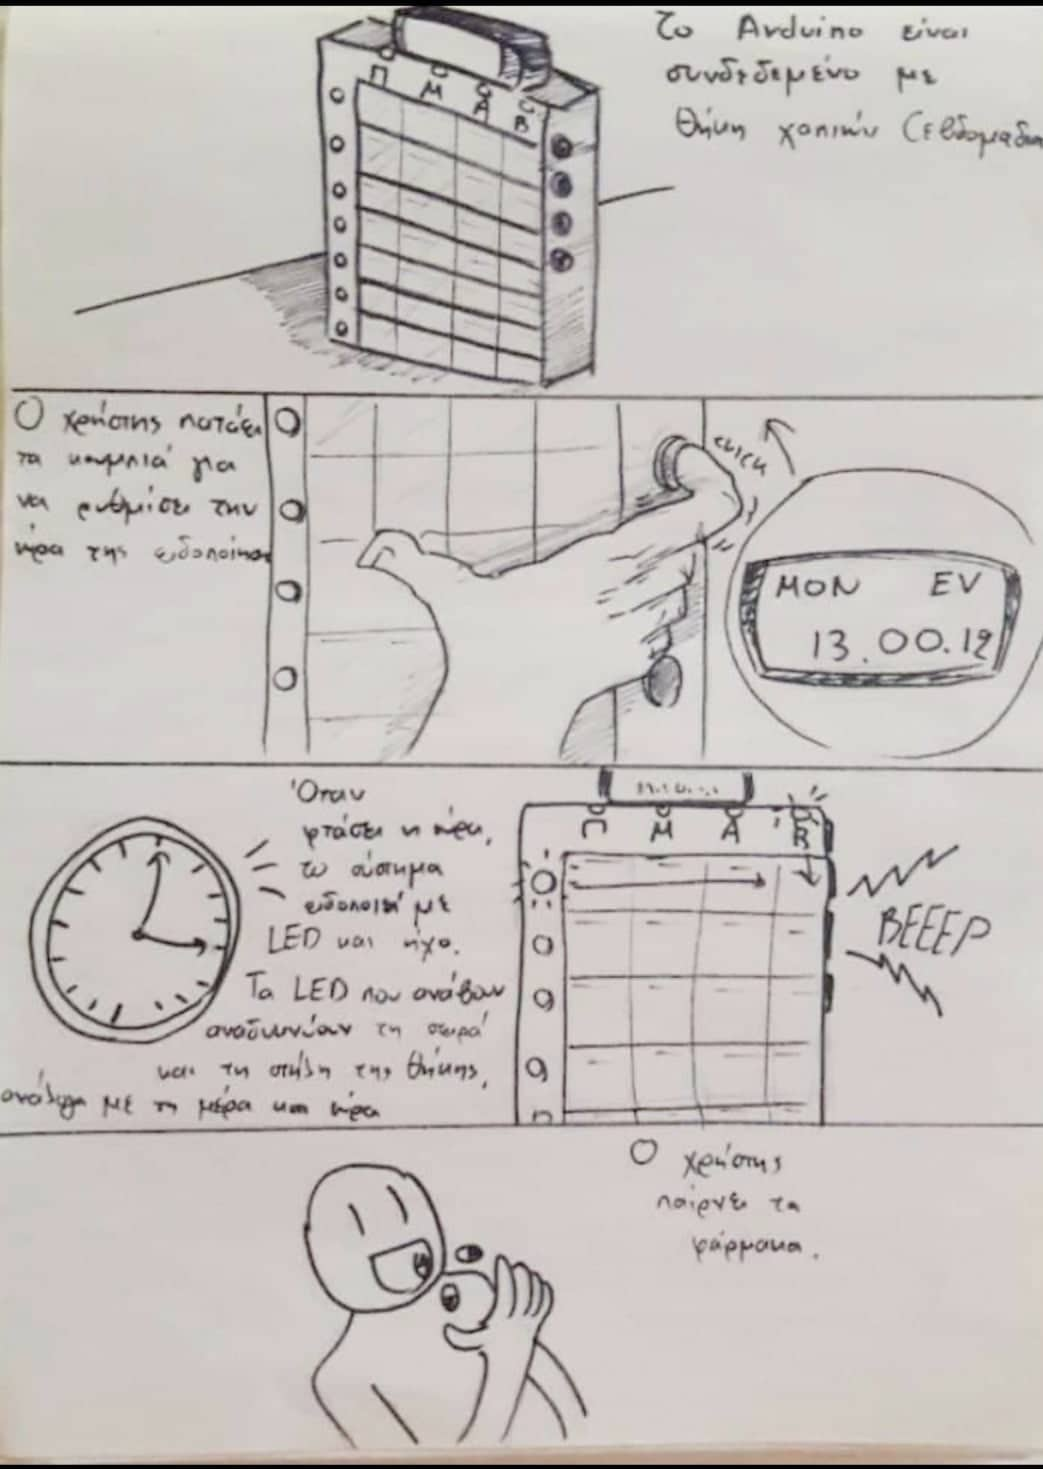 Το Arduino είναι
συνδεδεμένο με
θήκη χαπιών (εβδομαδι
Π Μ Α Β
Ο χρήστης πατάει
τα κουμπιά για
να ρυθμίσει την
ώρα της ειδοποίησης
CLICK
MON EV
13.00.12
Όταν
φτάσει η ώρα,
το σύστημα
ειδοποιεί με
LED και ήχο.
Τα LED που ανάβουν
αναδεικνύουν τη σειρά
και τη στήλη της θήκης,
ανάλογα με τη μέρα και ώρα
Π Μ Α Β
BEEEP
Ο χρήστης
παίρνει τα
φάρμακα.